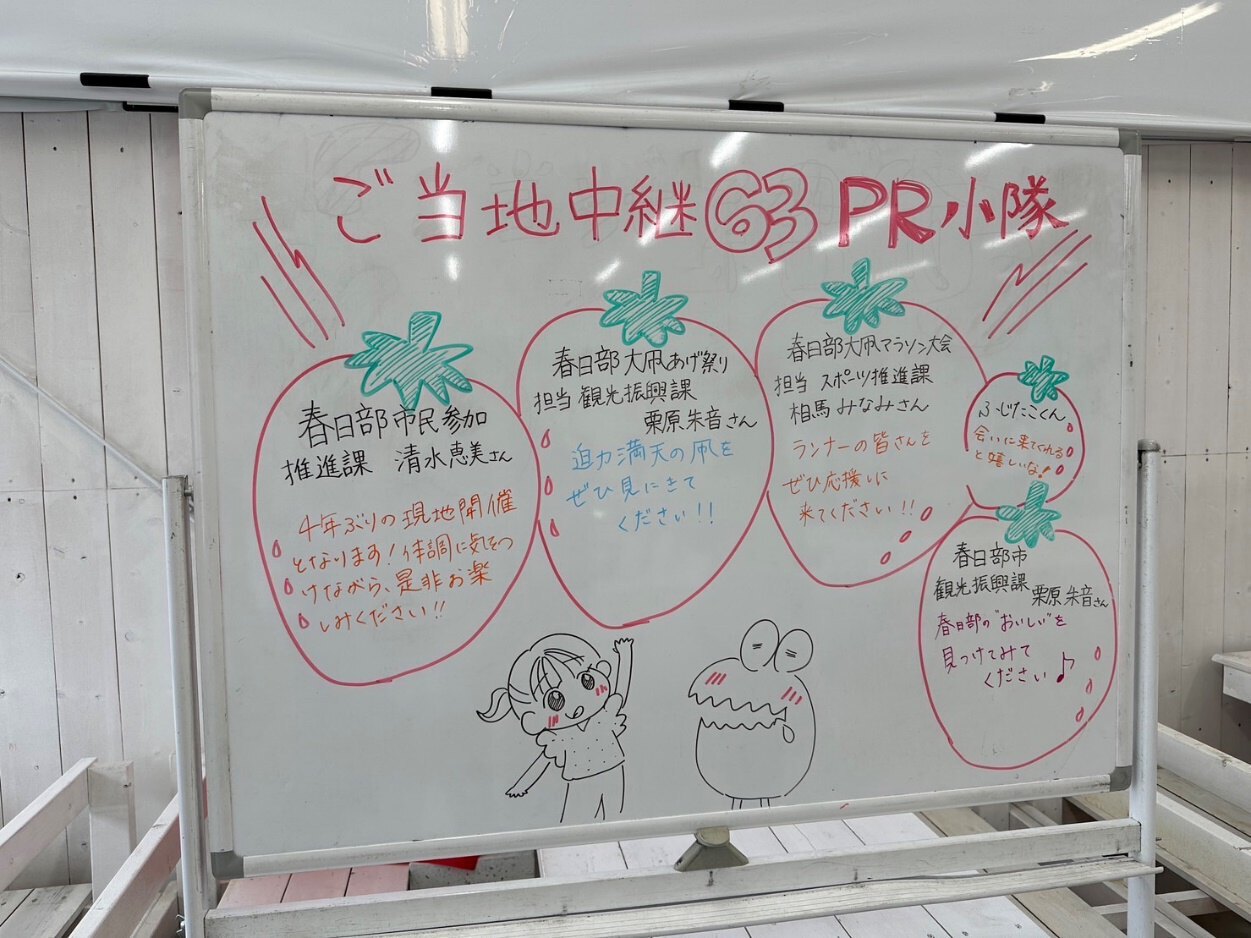 ご当地中継63PR小隊
春日部市民参加
推進課 清水恵美さん
4年ぶりの現地開催
となります!体調に気をつ
けながら、是非お楽
しみください!!
春日部大凧あげ祭り
担当 観光振興課
栗原朱音さん
迫力満天の凧を
ぜひ見にきて
ください!!
春日部大凧マラソン大会
担当 スポーツ推進課
相馬みなみさん
ランナーの皆さんを
ぜひ応援に
来てください!!
ふじたこくん
会いに来てくれる
と嬉しいな!
春日部市
観光振興課 栗原朱音さん
春日部の"おいしい"を
見つけてみて
ください♪